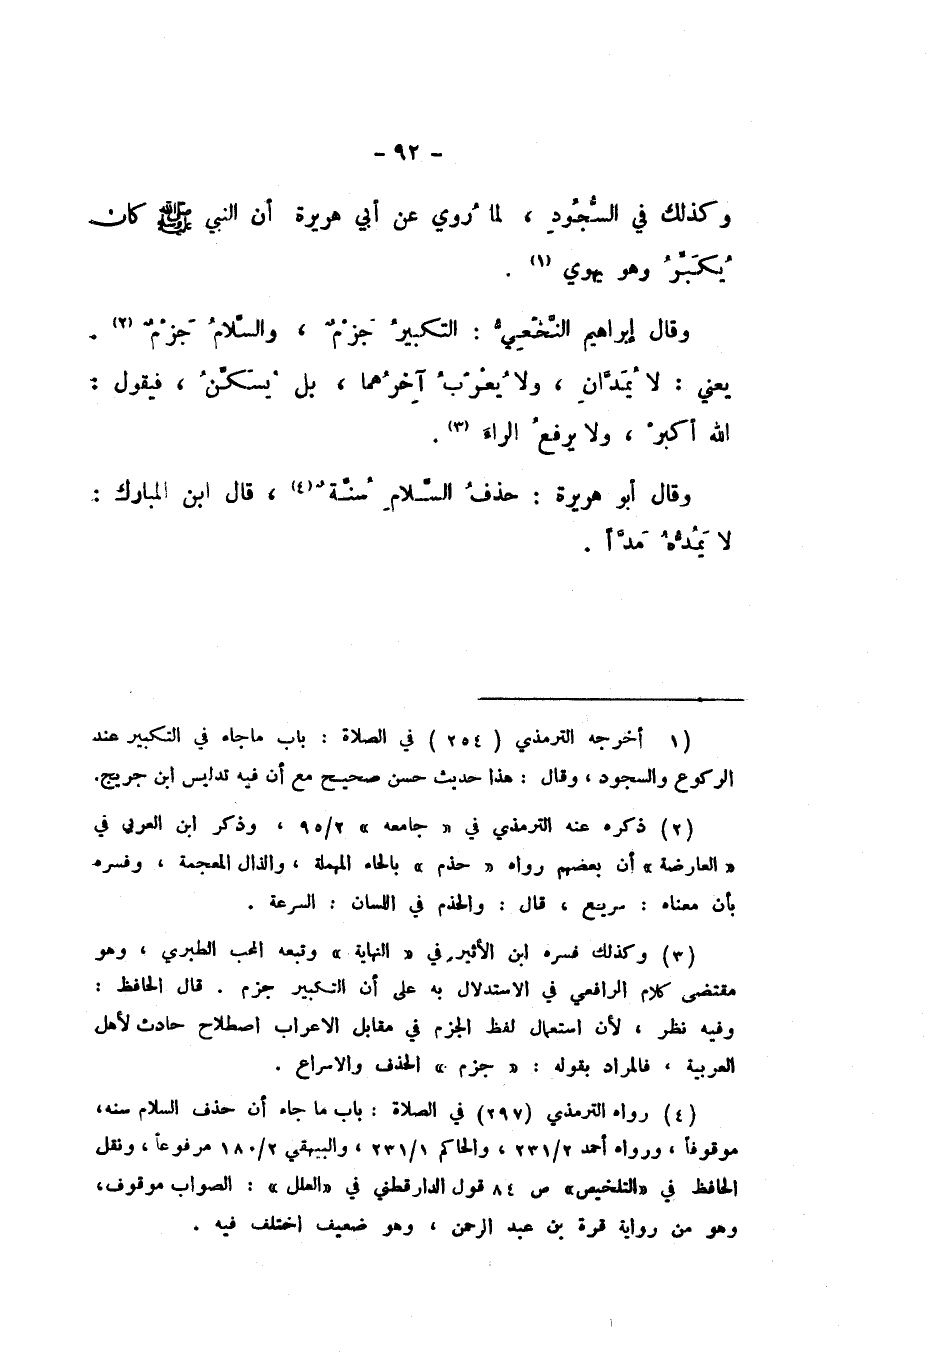 - ٩٢ -
وكذلك في السُّجُودِ ، لما رُوي عن أبي هريرة أن النبي ﷺ كان
يُكَبِّرُ وهو يهوي (١) .
وقال إبراهيم النَّخَعِيُّ : التكبيرُ جَزْمٌ ، والسَّلامُ جَزْمٌ (٢) .
يعني : لا يُمَدَّانِ ، ولا يُعْرَبُ آخِرُهما ، بل يُسَكَّنُ ، فيقول :
الله أكبرْ ، ولا يرفعُ الراءَ (٣) .
وقال أبو هريرة : حذفُ السَّلامِ سُنَّةٌ (٤) ، قال ابن المبارك :
لا يَمُدُّهُ مَدَّاً .
(١) أخرجه الترمذي ( ٢٥٤ ) في الصلاة : باب ماجاء في التكبير عند
الركوع والسجود ، وقال : هذا حديث حسن صحيح مع أن فيه تدليس ابن جريج.
(٢) ذكره عنه الترمذي في « جامعه » ٩٥/٢ ، وذكر ابن العربي في
« العارضة » أن بعضهم رواه « حذم » بالحاء المهملة ، والذال المعجمة ، وفسره
بأن معناه : سريع ، قال : والحذم في اللسان : السرعة .
(٣) وكذلك فسره ابن الأثير في « النهاية » وتبعه المحب الطبري ، وهو
مقتضى كلام الرافعي في الاستدلال به على أن التكبير جزم . قال الحافظ :
وفيه نظر ، لأن استعمال لفظ الجزم في مقابل الاعراب اصطلاح حادث لأهل
العربية ، فالمراد بقوله : « جزم » الحذف والاسراع .
(٤) رواه الترمذي (٢٩٧) في الصلاة : باب ما جاء أن حذف السلام سنه،
موقوفاً ، ورواه أحمد ٢٣١/٢ ، والحاكم ٢٣١/١ ، والبيهقي ١٨٠/٢ مرفوعاً ، ونقل
الحافظ في «التلخيص» ص ٨٤ قول الدارقطني في «العلل» : الصواب موقوف،
وهو من رواية قرة بن عبد الرحمن ، وهو ضعيف اختلف فيه .